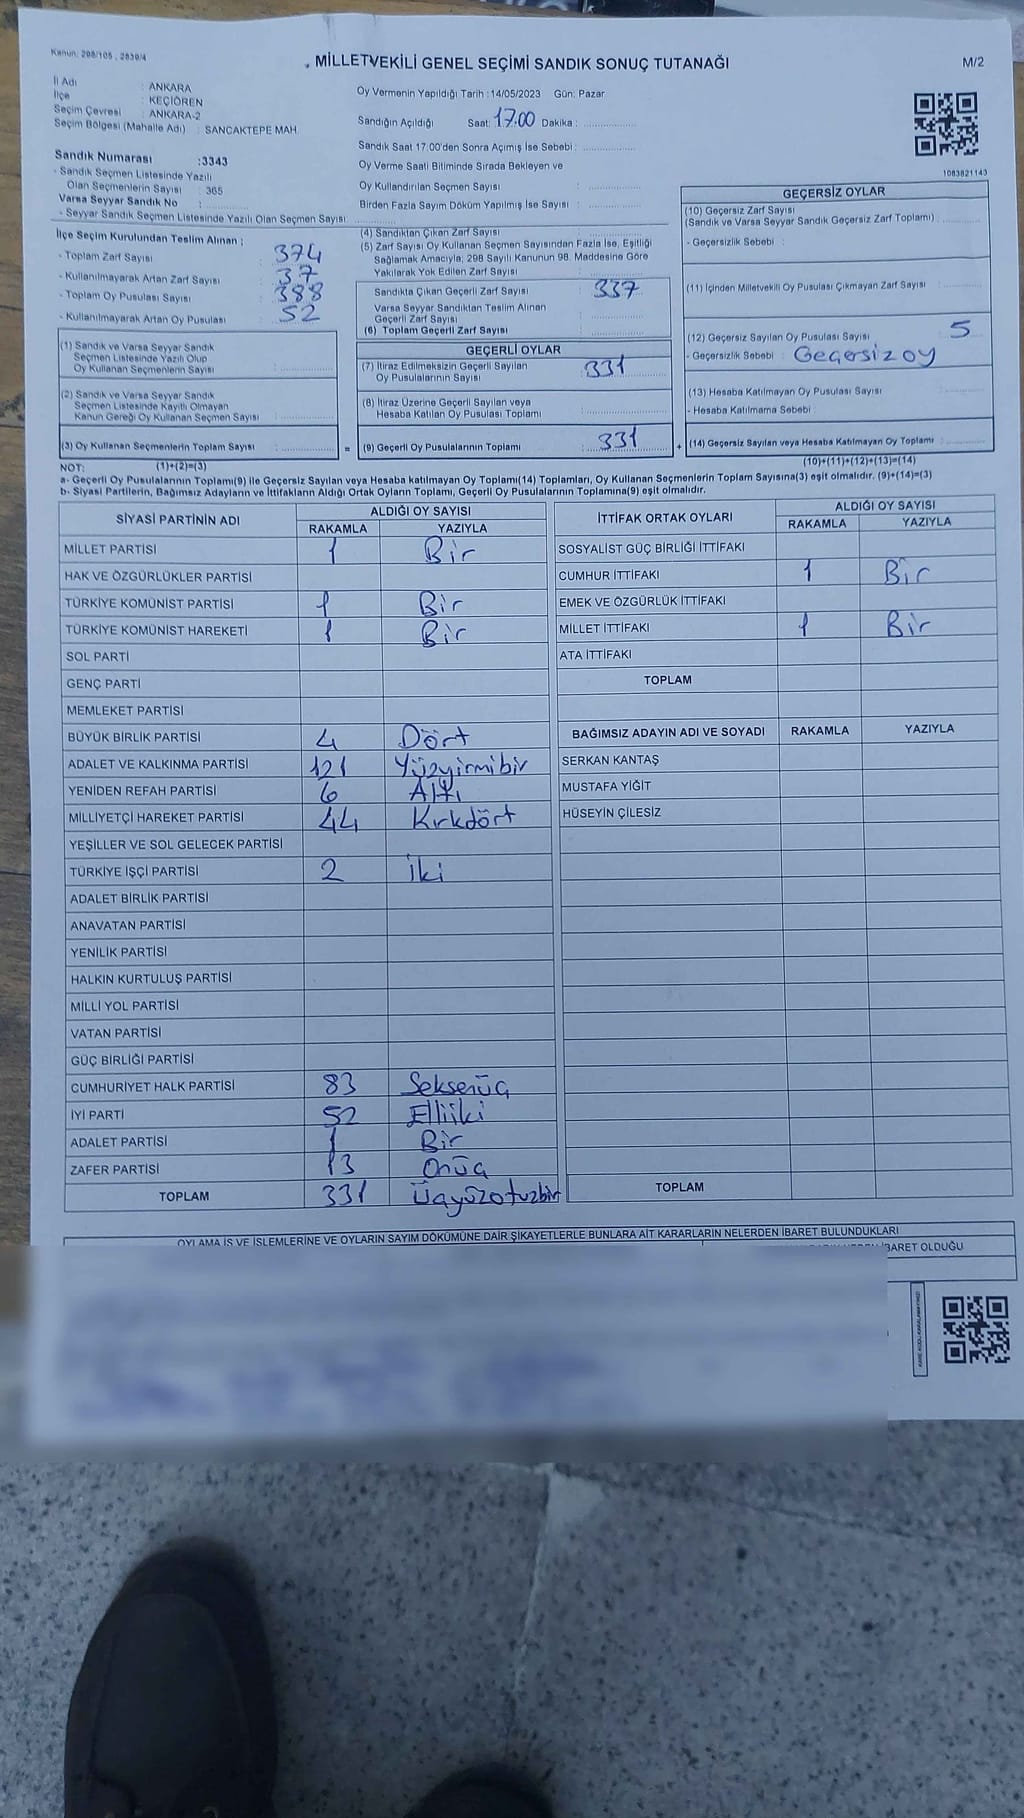 Kanun: 298/105 , 2839/4
MİLLETVEKİLİ GENEL SEÇİMİ SANDIK SONUÇ TUTANAĞI
M/2
İl Adı : ANKARA
İlçe : KEÇİÖREN
Seçim Çevresi : ANKARA-2
Seçim Bölgesi (Mahalle Adı) : SANCAKTEPE MAH.
Sandık Numarası :3343
- Sandık Seçmen Listesinde Yazılı
Olan Seçmenlerin Sayısı : 365
Varsa Seyyar Sandık No :
- Seyyar Sandık Seçmen Listesinde Yazılı Olan Seçmen Sayısı
Oy Vermenin Yapıldığı Tarih : 14/05/2023 Gün: Pazar
Sandığın Açıldığı Saat: 17.00 Dakika :
Sandık Saat 17:00'den Sonra Açımış İse Sebebi :
Oy Verme Saati Bitiminde Sırada Bekleyen ve
Oy Kullandırılan Seçmen Sayısı :
Birden Fazla Sayım Döküm Yapılmış İse Sayısı :
1083821143
İlçe Seçim Kurulundan Teslim Alınan :
- Toplam Zarf Sayısı : 374
- Kullanılmayarak Artan Zarf Sayısı : 37
- Toplam Oy Pusulası Sayısı : 388
- Kullanılmayarak Artan Oy Pusulası : 52
(1) Sandık ve Varsa Seyyar Sandık
Seçmen Listesinde Yazılı Olup
Oy Kullanan Seçmenlerin Sayısı :
(2) Sandık ve Varsa Seyyar Sandık
Seçmen Listesinde Kayıtlı Olmayan
Kanun Gereği Oy Kullanan Seçmen Sayısı :
(3) Oy Kullanan Seçmenlerin Toplam Sayısı : =
(4) Sandıktan Çıkan Zarf Sayısı :
(5) Zarf Sayısı Oy Kullanan Seçmen Sayısından Fazla İse, Eşitliği
Sağlamak Amacıyla; 298 Sayılı Kanunun 98. Maddesine Göre
Yakılarak Yok Edilen Zarf Sayısı :
Sandıkta Çıkan Geçerli Zarf Sayısı : 337
Varsa Seyyar Sandıktan Teslim Alınan
Geçerli Zarf Sayısı :
(6) Toplam Geçerli Zarf Sayısı :
GEÇERLİ OYLAR
(7) İtiraz Edilmeksizin Geçerli Sayılan
Oy Pusulalarının Sayısı : 331
(8) İtiraz Üzerine Geçerli Sayılan veya
Hesaba Katılan Oy Pusulası Toplamı :
(9) Geçerli Oy Pusulalarının Toplamı : 331 +
GEÇERSİZ OYLAR
(10) Geçersiz Zarf Sayısı
(Sandık ve Varsa Seyyar Sandık Geçersiz Zarf Toplamı)
- Geçersizlik Sebebi :
(11) İçinden Milletvekili Oy Pusulası Çıkmayan Zarf Sayısı :
(12) Geçersiz Sayılan Oy Pusulası Sayısı : 5
- Geçersizlik Sebebi : Geçersiz oy
(13) Hesaba Katılmayan Oy Pusulası Sayısı :
- Hesaba Katılmama Sebebi :
(14) Geçersiz Sayılan veya Hesaba Katılmayan Oy Toplamı :
NOT: (1)+(2)=(3)
(10)+(11)+(12)+(13)=(14)
a- Geçerli Oy Pusulalarının Toplamı(9) ile Geçersiz Sayılan veya Hesaba katılmayan Oy Toplamı(14) Toplamları, Oy Kullanan Seçmenlerin Toplam Sayısına(3) eşit olmalıdır. (9)+(14)=(3)
b- Siyasi Partilerin, Bağımsız Adayların ve İttifakların Aldığı Ortak Oyların Toplamı, Geçerli Oy Pusulalarının Toplamına(9) eşit olmalıdır.
SİYASİ PARTİNİN ADI ALDIĞI OY SAYISI
RAKAMLA YAZIYLA
MİLLET PARTİSİ 1 Bir
HAK VE ÖZGÜRLÜKLER PARTİSİ
TÜRKİYE KOMÜNİST PARTİSİ 1 Bir
TÜRKİYE KOMÜNİST HAREKETİ 1 Bir
SOL PARTİ
GENÇ PARTİ
MEMLEKET PARTİSİ
BÜYÜK BİRLİK PARTİSİ 4 Dört
ADALET VE KALKINMA PARTİSİ 121 Yüzyirmibir
YENİDEN REFAH PARTİSİ 6 Altı
MİLLİYETÇİ HAREKET PARTİSİ 44 Kırkdört
YEŞİLLER VE SOL GELECEK PARTİSİ
TÜRKİYE İŞÇİ PARTİSİ 2 İki
ADALET BİRLİK PARTİSİ
ANAVATAN PARTİSİ
YENİLİK PARTİSİ
HALKIN KURTULUŞ PARTİSİ
MİLLİ YOL PARTİSİ
VATAN PARTİSİ
GÜÇ BİRLİĞİ PARTİSİ
CUMHURİYET HALK PARTİSİ 83 Seksenüç
İYİ PARTİ 52 Elliiki
ADALET PARTİSİ 1 Bir
ZAFER PARTİSİ 13 Onüç
TOPLAM 331 Üçyüzotuzbir
İTTİFAK ORTAK OYLARI ALDIĞI OY SAYISI
RAKAMLA YAZIYLA
SOSYALİST GÜÇ BİRLİĞİ İTTİFAKI
CUMHUR İTTİFAKI 1 Bir
EMEK VE ÖZGÜRLÜK İTTİFAKI
MİLLET İTTİFAKI 1 Bir
ATA İTTİFAKI
TOPLAM
BAĞIMSIZ ADAYIN ADI VE SOYADI RAKAMLA YAZIYLA
SERKAN KANTAŞ
MUSTAFA YİĞİT
HÜSEYİN ÇİLESİZ
TOPLAM
OYLAMA İŞ VE İŞLEMLERİNE VE OYLARIN SAYIM DÖKÜMÜNE DAİR ŞİKAYETLERLE BUNLARA AİT KARARLARIN NELERDEN İBARET BULUNDUKLARI
OLDUĞU